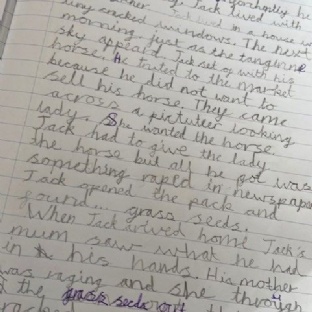 Jack lived with
Jack lived in a house
tiny cracked windows. The next
morning, just as the tangerine
sky appears, Jack set of with his
horse. he truted to the market
because he did not want to
sell his horse. They came
across a pictuteer looking
lady. She wanted the horse
Jack had to give the lady
the horse but all he got was
something raped in newspaper
Jack opened the pack and
found... grass seeds.
When Jack arived home Jack's
mum saw what he had
in his hands. His mother
was raging and she through
the grass seeds out